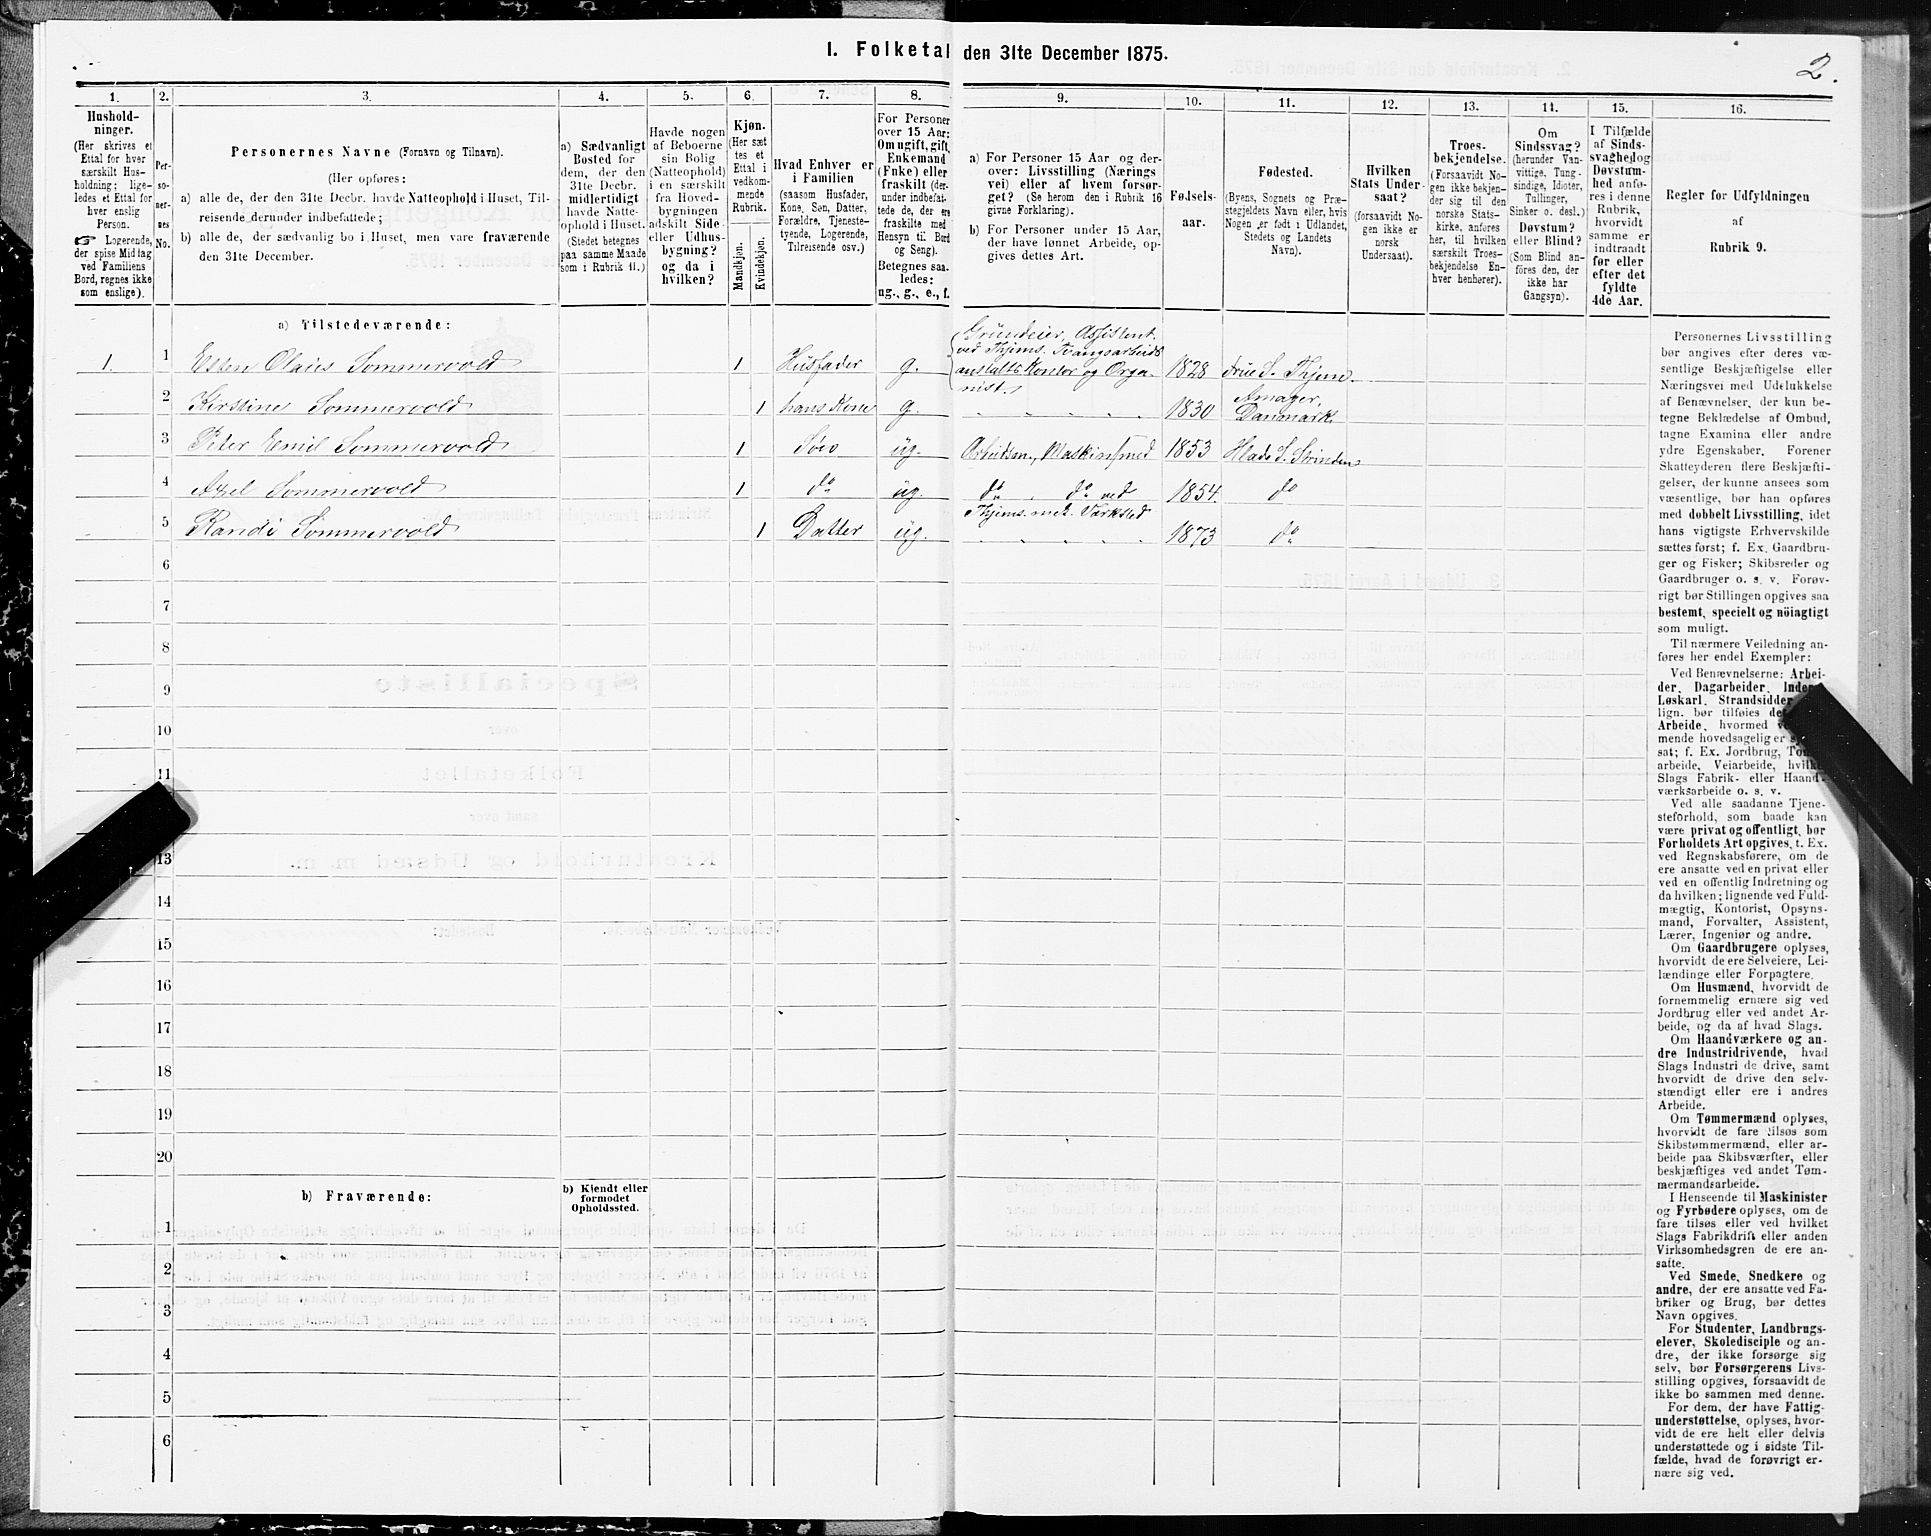 I. Folketal den 31te December 1875.
2.
1.
Hushold-
ninger.
(Her skrives et
Ettal for hver
særskilt Hus-
holdning; lige-
ledes et Ettal for
hver enslig
Person.
☞ Logerende,
der spise Middag
ved Familiens
Bord, regnes ikke
som enslige).
2.
Per-
so-
ner-
nes
No.
3.
Personernes Navne (Fornavn og Tilnavn).
(Her opføres:
a) alle de, der den 31te Decbr. havde Natteophold i Huset, Til-
reisende derunder indbefattede;
b) alle de, der sædvanlig bo i Huset, men vare fraværende
den 31te December.
4.
a) Sædvanligt
Bosted for
dem, der den
31te Decbr.
midlertidigt
havde Natte-
ophold i Huset.
(Stedet betegnes
paa samme Maade
som i Rubrik 11.)
5.
Havde nogen
af Beboerne
sin Bolig
(Natteophold)
i en særskilt
fra Hoved-
bygningen
adskilt Side-
eller Udhus-
bygning?
og da i
hvilken?
6.
Kjøn.
(Her sæt
tes et
Ettal i
vedkom-
mende
Rubrik.
Mandkjøn.
Kvindekjøn.
7.
Hvad Enhver er
i Familien
(saasom Husfader,
Kone, Søn, Datter,
Forældre, Tjeneste-
tyende, Logerende,
Tilreisende osv.)
8.
For Personer
over 15 Aar:
Om ugift, gift,
Enkemand
(Enke) eller
fraskilt (der-
under indbefat-
tede de, der ere
fraskilte med
Hensyn til Bord
og Seng).
Betegnes saa-
ledes:
ug., g., e., f.
9.
a) For Personer 15 Aar og der-
over: Livsstilling (Nærings-
vei) eller af hvem forsør-
get? (Se herom den i Rubrik 16
givne Forklaring).
b) For Personer under 15 Aar,
der have lønnet Arbeide, op-
gives dettes Art.
10.
Fødsels-
aar.
11.
Fødested.
(Byens, Sognets og Præ-
stegjeldets Navn eller, hvis
Nogen er født i Udlandet,
Stedets og Landets
Navn).
12.
Hvilken
Stats Under-
saat?
(forsaavidt No-
gen ikke er
norsk
Undersaat).
13.
Troes-
bekjendelse.
(Forsaavidt No-
gen ikke bekjen-
der sig til den
norske Stats-
kirke, anføres
her, til hvilken
særskilt Troes-
bekjendelse En-
hver henhører).
14.
Om
Sindssvag?
(herunder Van-
vittige, Tung-
sindige, Idioter,
Tullinger,
Sinker o. desl.)
Døvstum?
eller Blind?
(Som Blind an-
føres den, der
ikke har
Gangsyn).
15.
I Tilfælde
af Sinds-
svaghed og
Døvstum-
hed anfø-
res i denne
Rubrik,
hvorvidt
samme er
indtraadt
før eller
efter det
fyldte
4de Aar.
16.
Regler for Udfyldningen
af
Rubrik 9.
a) Tilstedeværende:
Grundeier, Assistent
ved Thjems. Tvangsarbeids
1. 1 Esten Olaus Sommervold 1 Husfader g. anstalts Kontor og Orga- 1828 Thjem.
nist.
2 Kirstine Sommervold 1 hans Kone g. 1830 Amager,
Danmark
3 Peter Emil Sommervold 1 Søn ug. Maskinsmed 1853 Hlade S. Strinden
4 Axel Sommervold 1 do ug. do do ved 1854. do
Thjems. mek. Værksted
5 Randi Sommervold 1 Datter ug. 1873 do
6
7
8
9
10
11
13
14
15
16
17
18
19
20
b) Fraværende:
b) Kjendt eller
formodet
Opholdssted.
1
2
3
4
5
6
Personernes Livsstilling
bør angives efter deres væ-
sentlige Beskjæftigelse eller
Næringsvei med Udelukkelse
af Benævnelser, der kun be-
tegne Beklædelse af Ombud,
tagne Examina eller andre
ydre Egenskaber. Forener
Skatteyderen flere Beskjæfti-
gelser, der kunne ansees som
væsentlige, bør han opføres
med dobbelt Livsstilling, idet
hans vigtigste Erhvervskilde
sættes først; f. Ex. Gaardbru-
ger og Fisker; Skibsreder og
Gaardbruger o. s. v. Forøv-
rigt bør Stillingen opgives saa
bestemt, specielt og nöiagtigt
som muligt.
Til nærmere Veiledning an-
føres her endel Exempler:
Ved Benævnelserne: Arbei-
der, Dagarbeider,
Løskarl, Strandsidder
lign. bør tilføies
Arbeide, hvormed
mende hovedsagelig er
sat; f. Ex. Jordbrug,
arbeide, Veiarbeide,
Slags Fabrik- eller Haand-
værksarbeide o. s. v.
Ved alle saadanne Tjene-
steforhold, som baade kan
være privat og offentligt, bør
Forholdets Art opgives, t. Ex.
ved Regnskabsførere, om de
ere ansatte ved en privat eller
ved en offentlig Indretning og
da hvilken; lignende ved Fuld-
mægtig, Kontorist, Opsyns-
mand, Forvalter, Assistent,
Lærer, Ingeniør og andre.
Om Gaardbrugere oplyses,
hvorvidt de ere Selveiere, Lei-
lændinge eller Forpagtere.
Om Husmænd, hvorvidt de
fornemmelig ernære sig ved
Jordbrug eller ved andet Ar-
beide, og da af hvad Slags.
Om Haandværkere og an-
dre Industridrivende, hvad
Slags Industri de drive, samt
hvorvidt de drive den selv-
stændigt eller ere i andres
Arbeide.
Om Tømmermænd oplyses,
hvorvidt de fare tilsøs som
Skibstømmermænd, eller ar-
beide paa Skibsværfter, eller
beskjæftiges ved andet Tøm-
mermandsarbeide.
I Henseende til Maskinister
og Fyrbødere oplyses, om de
fare tilsøs eller ved hvilket
Slags Fabrikdrift eller anden
Virksomhedsgren de ere an-
satte.
Ved Smede, Snedkere og
andre, der ere ansatte ved Fa-
briker og Brug, bør dettes
Navn opgives.
For Studenter, Landbrugs-
elever, Skoledisciple og an-
dre, der ikke forsørge sig
selv, bør Forsørgerens Livs-
stilling opgives, forsaavidt de
ikke bo sammen med denne.
For dem, der have Fattig-
understøttelse, oplyses, hvor-
vidt de ere helt eller delvis
understøttede og i sidste Til-
fælde, hvad de forøvrigt er-
nære sig ved.